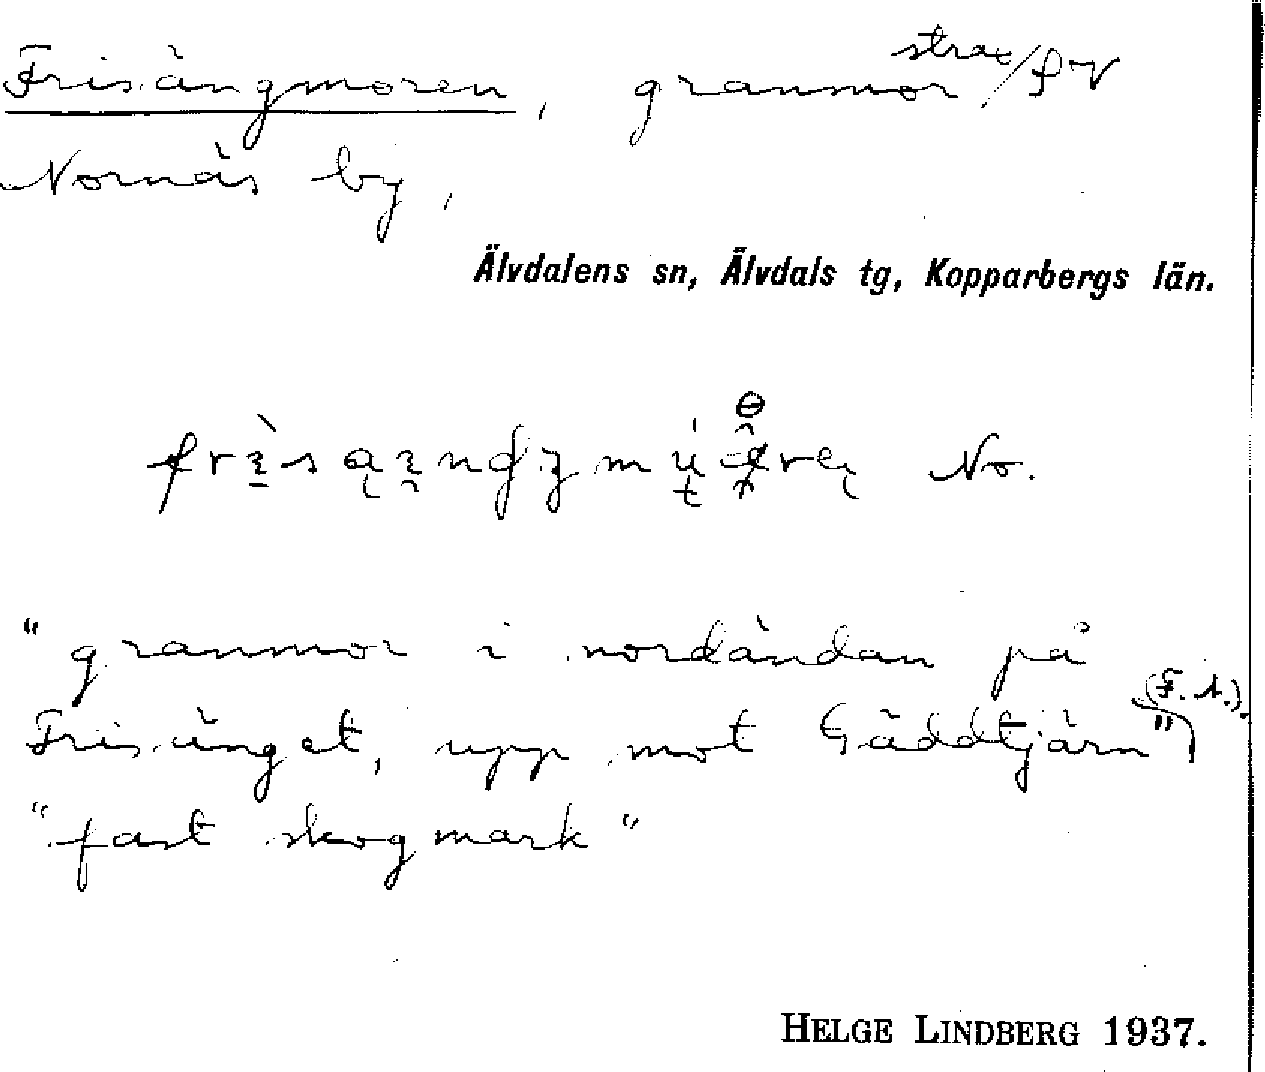 Frisängmoren, granmor strax f V
Nornäs by,
Älvdalens sn, Älvdals tg, Kopparbergs län.
No.
"granmor i nordändan på
Frisänget, upp mot Gäddtjärn" (F. A.).
"fast skogmark"
HELGE LINDBERG 1937.